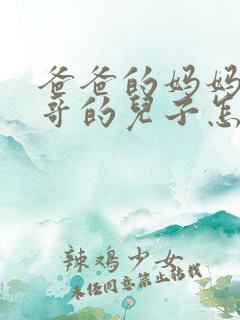 爸爸的妈妈
哥的兒子怎
辣鸡少女
未经同意禁止转载